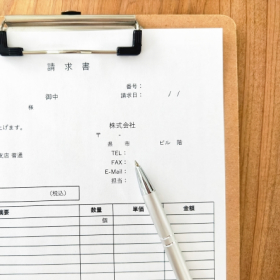 請求書
番号：
御中
請求日： / /
様
株式会社
げます。
〒 -
県 市 ビル 階
支店 普通
TEL：
FAX：
E-Mail：
担当：
(税込)
摘要 数量 単価 金額
個